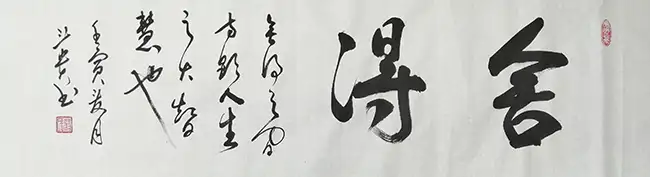 舍得
舍得之间
方显人生
之大智
慧也
壬寅夏月